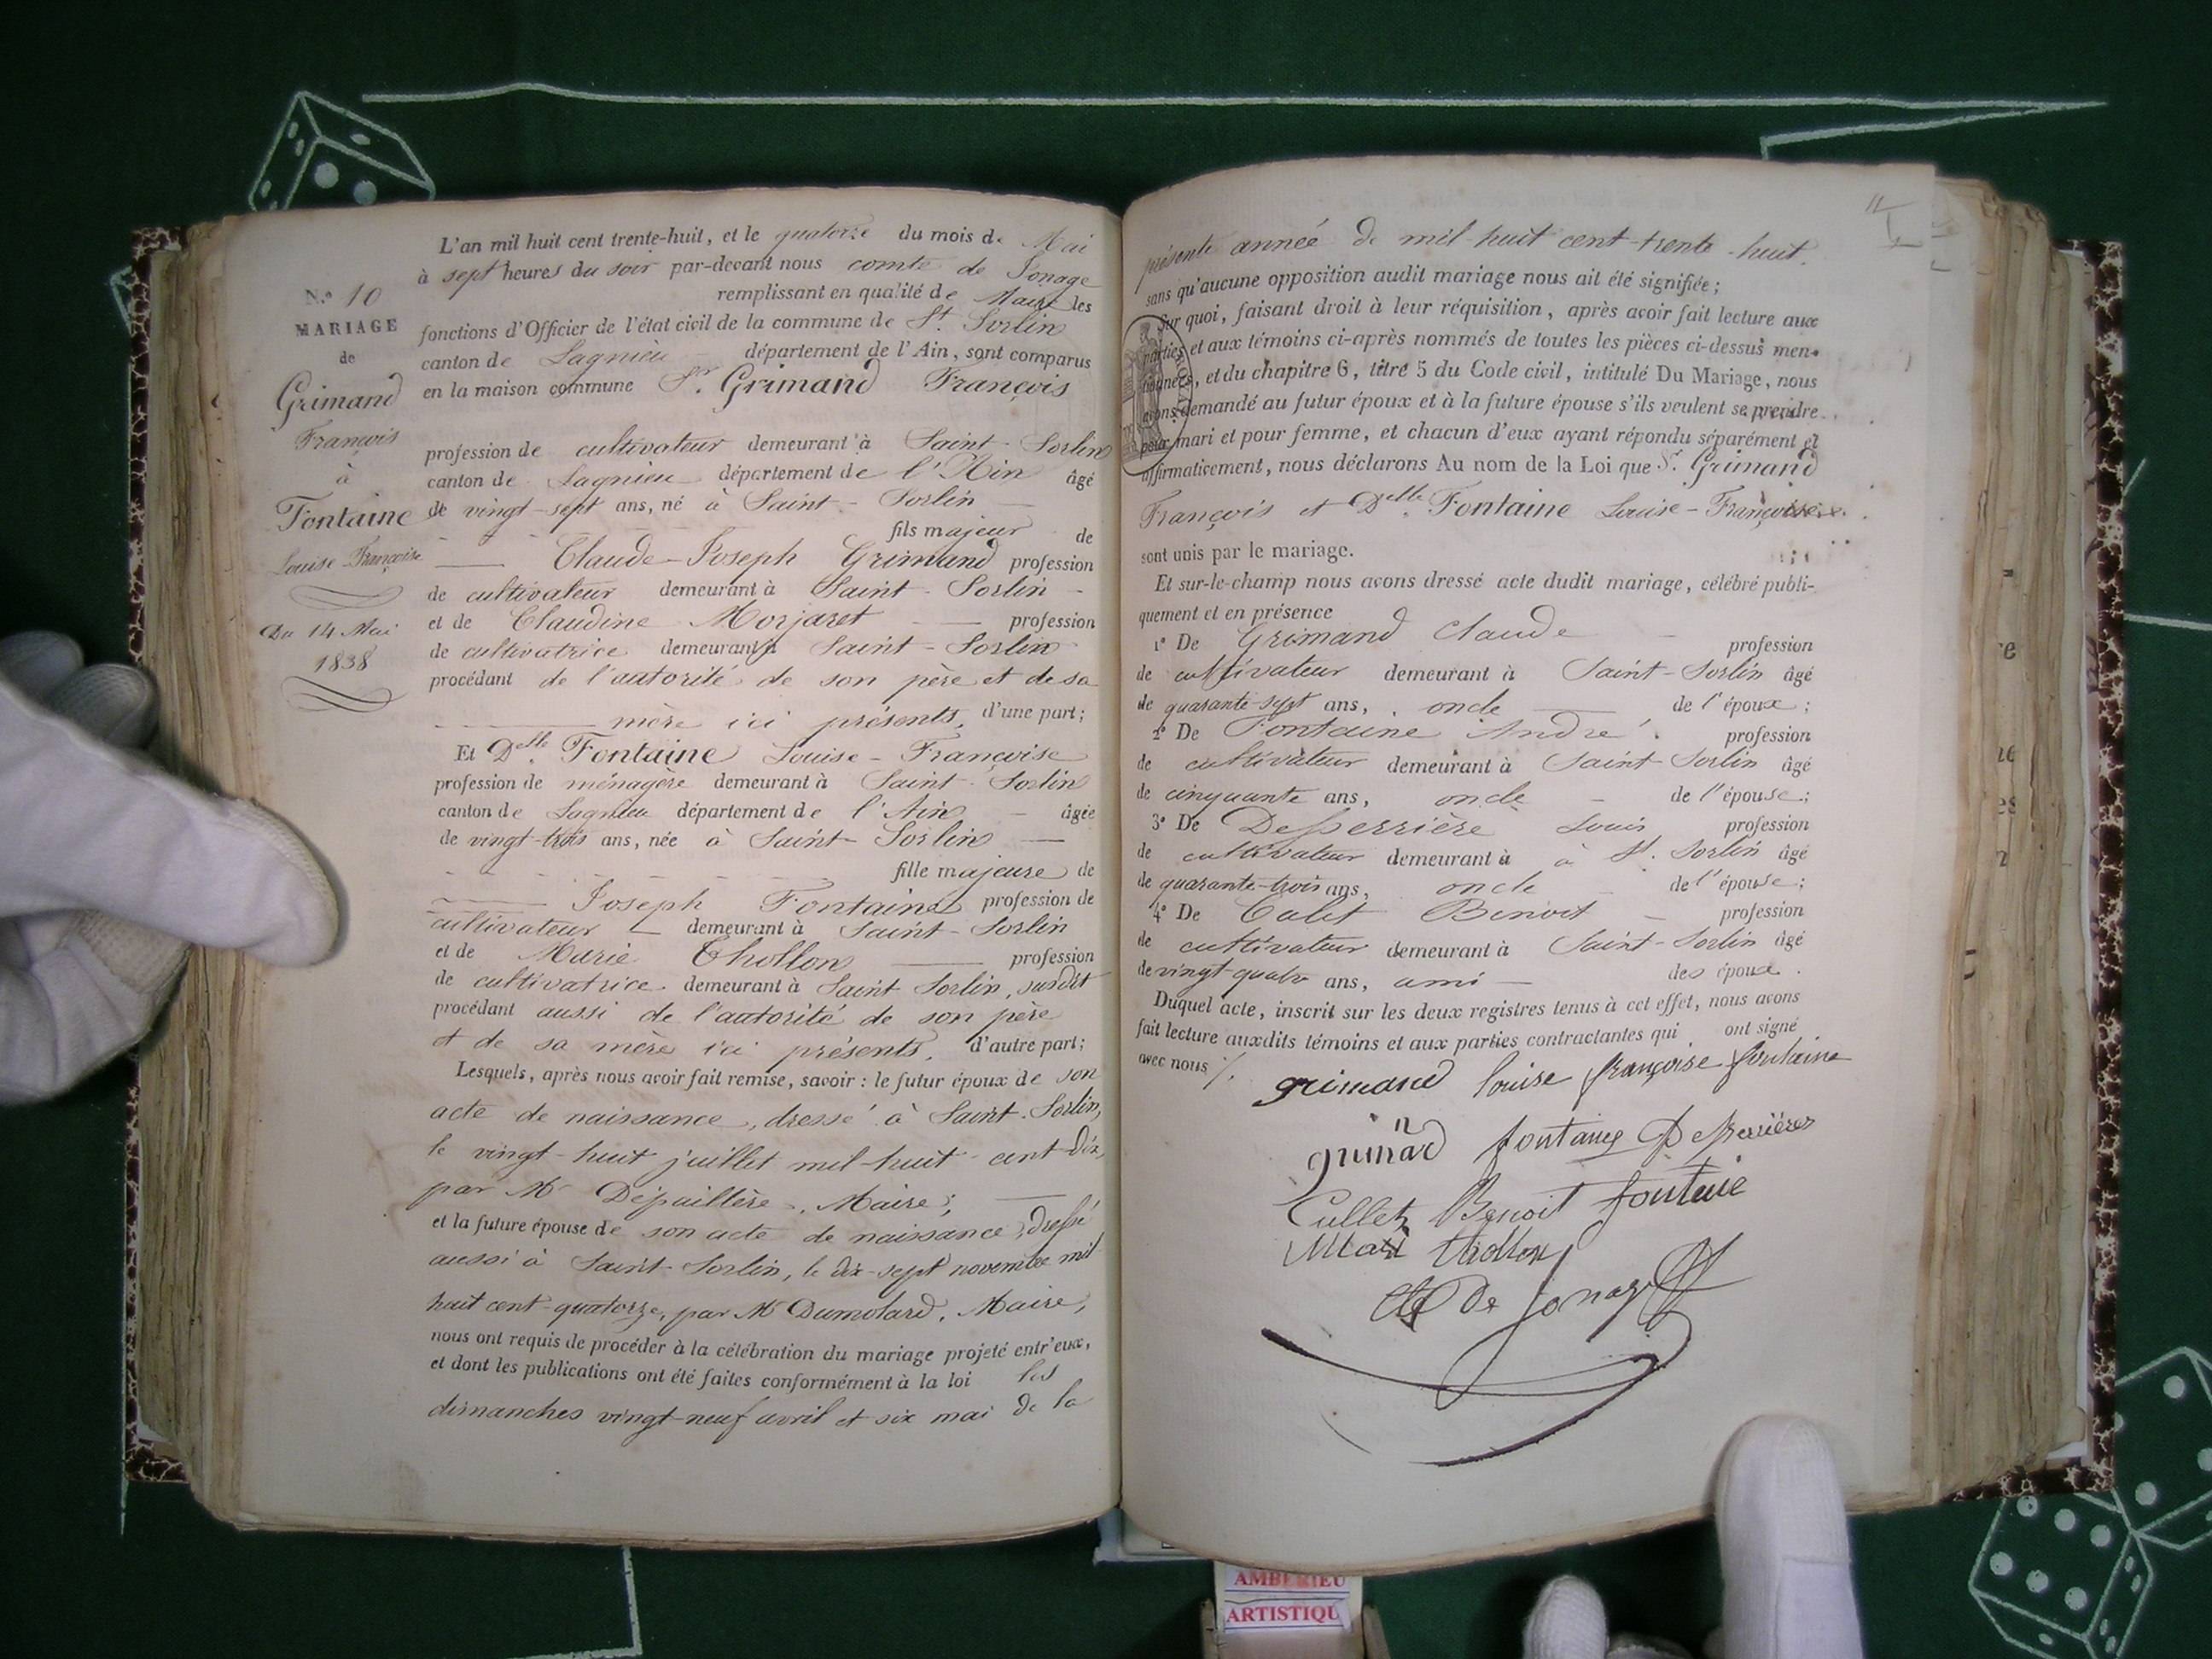 N.º 10
MARIAGE
de
Grimand
François
à
Fontaine
Louise Françoise
Du 14 Mai
1838
L'an mil huit cent trente-huit, et le quatorze du mois de Mai
à sept heures du soir par-devant nous comte de Jonage
remplissant en qualité de Maire les
fonctions d'Officier de l'état civil de la commune de St. Sorlin
canton de Lagnieu département de l'Ain, sont comparus
en la maison commune Sr. Grimand François
profession de cultivateur demeurant à Saint-Sorlin
canton de Lagnieu département de l'Ain âgé
de vingt-sept ans, né à Saint-Sorlin
fils majeur de
Claude-Joseph Grimand profession
de cultivateur demeurant à Saint-Sorlin
et de Claudine Morjaret profession
de cultivatrice demeurant à Saint-Sorlin
procédant de l'autorité de son père et de sa
mère ici présents, d'une part;
Et Delle. Fontaine Louise-Françoise
profession de ménagère demeurant à Saint-Sorlin
canton de Lagnieu département de l'Ain âgée
de vingt-trois ans, née à Saint-Sorlin
fille majeure de
Joseph Fontaine profession de
cultivateur demeurant à Saint-Sorlin
et de Marie Thollon profession
de cultivatrice demeurant à Saint Sorlin, susdit
procédant aussi de l'autorité de son père
et de sa mère ici présents, d'autre part;
Lesquels, après nous avoir fait remise, savoir : le futur époux de son
acte de naissance, dressé à Saint-Sorlin,
le vingt-huit juillet mil-huit-cent-dix,
par Mr Dépaillère, Maire;
et la future épouse de son acte de naissance, dressé
aussi à Saint-Sorlin, le dix-sept novembre mil
huit cent-quatorze, par Mr Dumolard, Maire,
nous ont requis de procéder à la célébration du mariage projeté entr'eux,
et dont les publications ont été faites conformément à la loi les
dimanches vingt-neuf avril et six mai de la
11
présente année de mil-huit cent-trente-huit.
sans qu'aucune opposition audit mariage nous ait été signifiée;
Sur quoi, faisant droit à leur réquisition, après avoir fait lecture aux
parties et aux témoins ci-après nommés de toutes les pièces ci-dessus men-
tionnées, et du chapitre 6, titre 5 du Code civil, intitulé Du Mariage, nous
avons demandé au futur époux et à la future épouse s'ils veulent se prendre
pour mari et pour femme, et chacun d'eux ayant répondu séparément et
affirmativement, nous déclarons Au nom de la Loi que Sr. Grimand
François et Delle. Fontaine Louise-Françoise
sont unis par le mariage.
Et sur-le-champ nous avons dressé acte dudit mariage, célébré publi-
quement et en présence
1º De Grimand Claude profession
de cultivateur demeurant à Saint-Sorlin âgé
de quarante-sept ans, oncle de l'époux;
2º De Fontaine André profession
de cultivateur demeurant à Saint-Sorlin âgé
de cinquante ans, oncle de l'épouse;
3º De Desperrière Louis profession
de cultivateur demeurant à à St. Sorlin âgé
de quarante-trois ans, oncle de l'épouse;
4º De Culet Benoit profession
de cultivateur demeurant à Saint-Sorlin âgé
de vingt-quatre ans, ami des époux.
Duquel acte, inscrit sur les deux registres tenus à cet effet, nous avons
fait lecture auxdits témoins et aux parties contractantes qui ont signé
avec nous
grimand louise françoise fontaine
grimad fontaine Desperrières
Cullet Benoit fontaine
Mari thollon
Cte de Jonage
AMBERIEU
ARTISTIQU